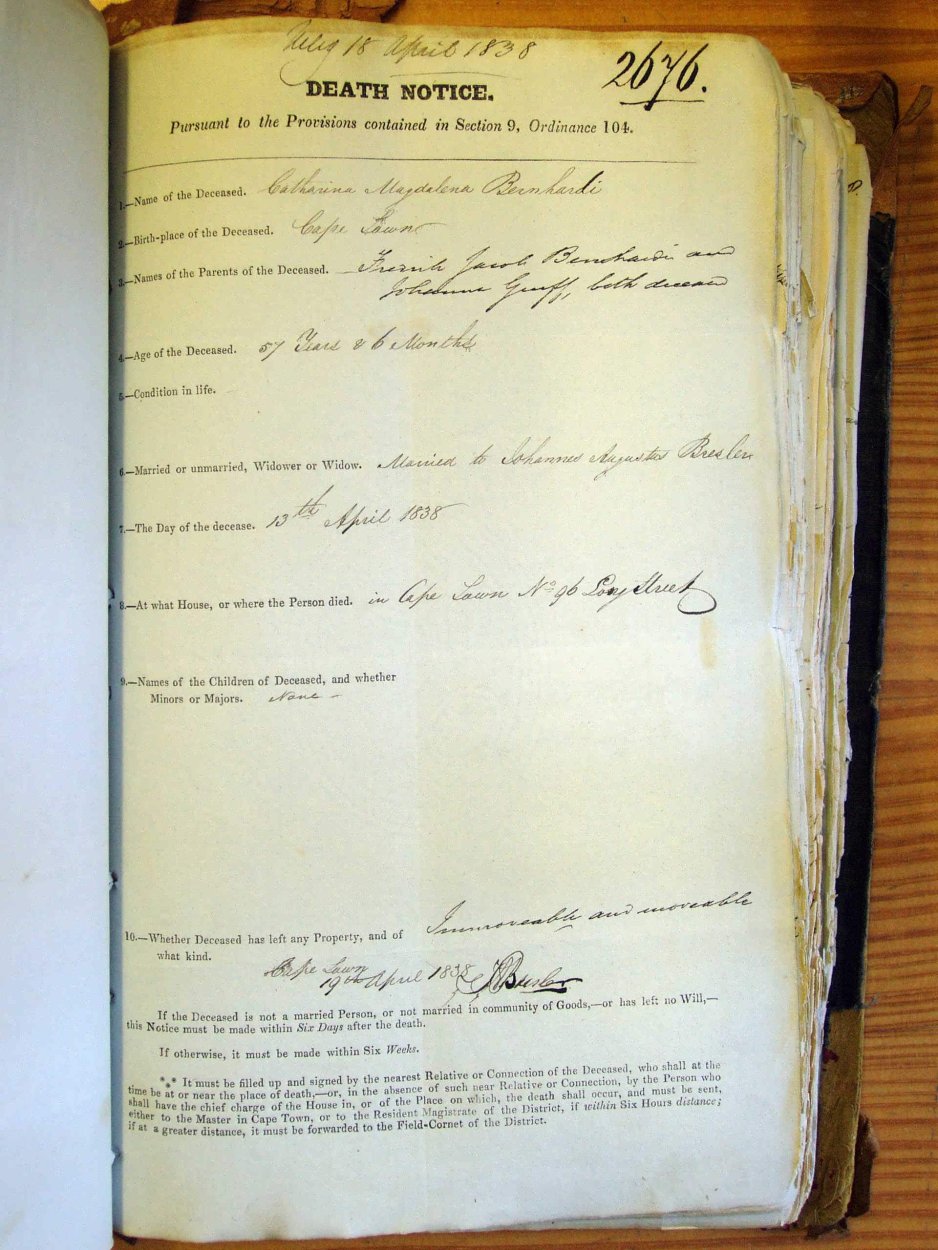 18 April 1838
2676.
DEATH NOTICE.
Pursuant to the Provisions contained in Section 9, Ordinance 104.
1.—Name of the Deceased. Catharina Magdalena Bernhardi
2.—Birth-place of the Deceased. Cape Town
3.—Names of the Parents of the Deceased. Jacob Bernhardi and
Johanna both deceased
4.—Age of the Deceased. 57 Years & 6 Months
5.—Condition in life.
6.—Married or unmarried, Widower or Widow. Married to Johannes Augustus Bresler
7.—The Day of the decease. 13th April 1838
8.—At what House, or where the Person died. in Cape Town No 96 Long Street
9.—Names of the Children of Deceased, and whether
Minors or Majors. None –
10.—Whether Deceased has left any Property, and of Immoveable and moveable
what kind.
Cape Town
19th April 1838 Bresler
If the Deceased is not a married Person, or not married in community of Goods,—or has left no Will,—
this Notice must be made within Six Days after the death.
If otherwise, it must be made within Six Weeks.
*** It must be filled up and signed by the nearest Relative or Connection of the Deceased, who shall at the
time be at or near the place of death,—or, in the absence of such near Relative or Connection, by the Person who
shall have the chief charge of the House in, or of the Place on which, the death shall occur, and must be sent,
either to the Master in Cape Town, or to the Resident Magistrate of the District, if within Six Hours distance;
if at a greater distance, it must be forwarded to the Field-Cornet of the District.